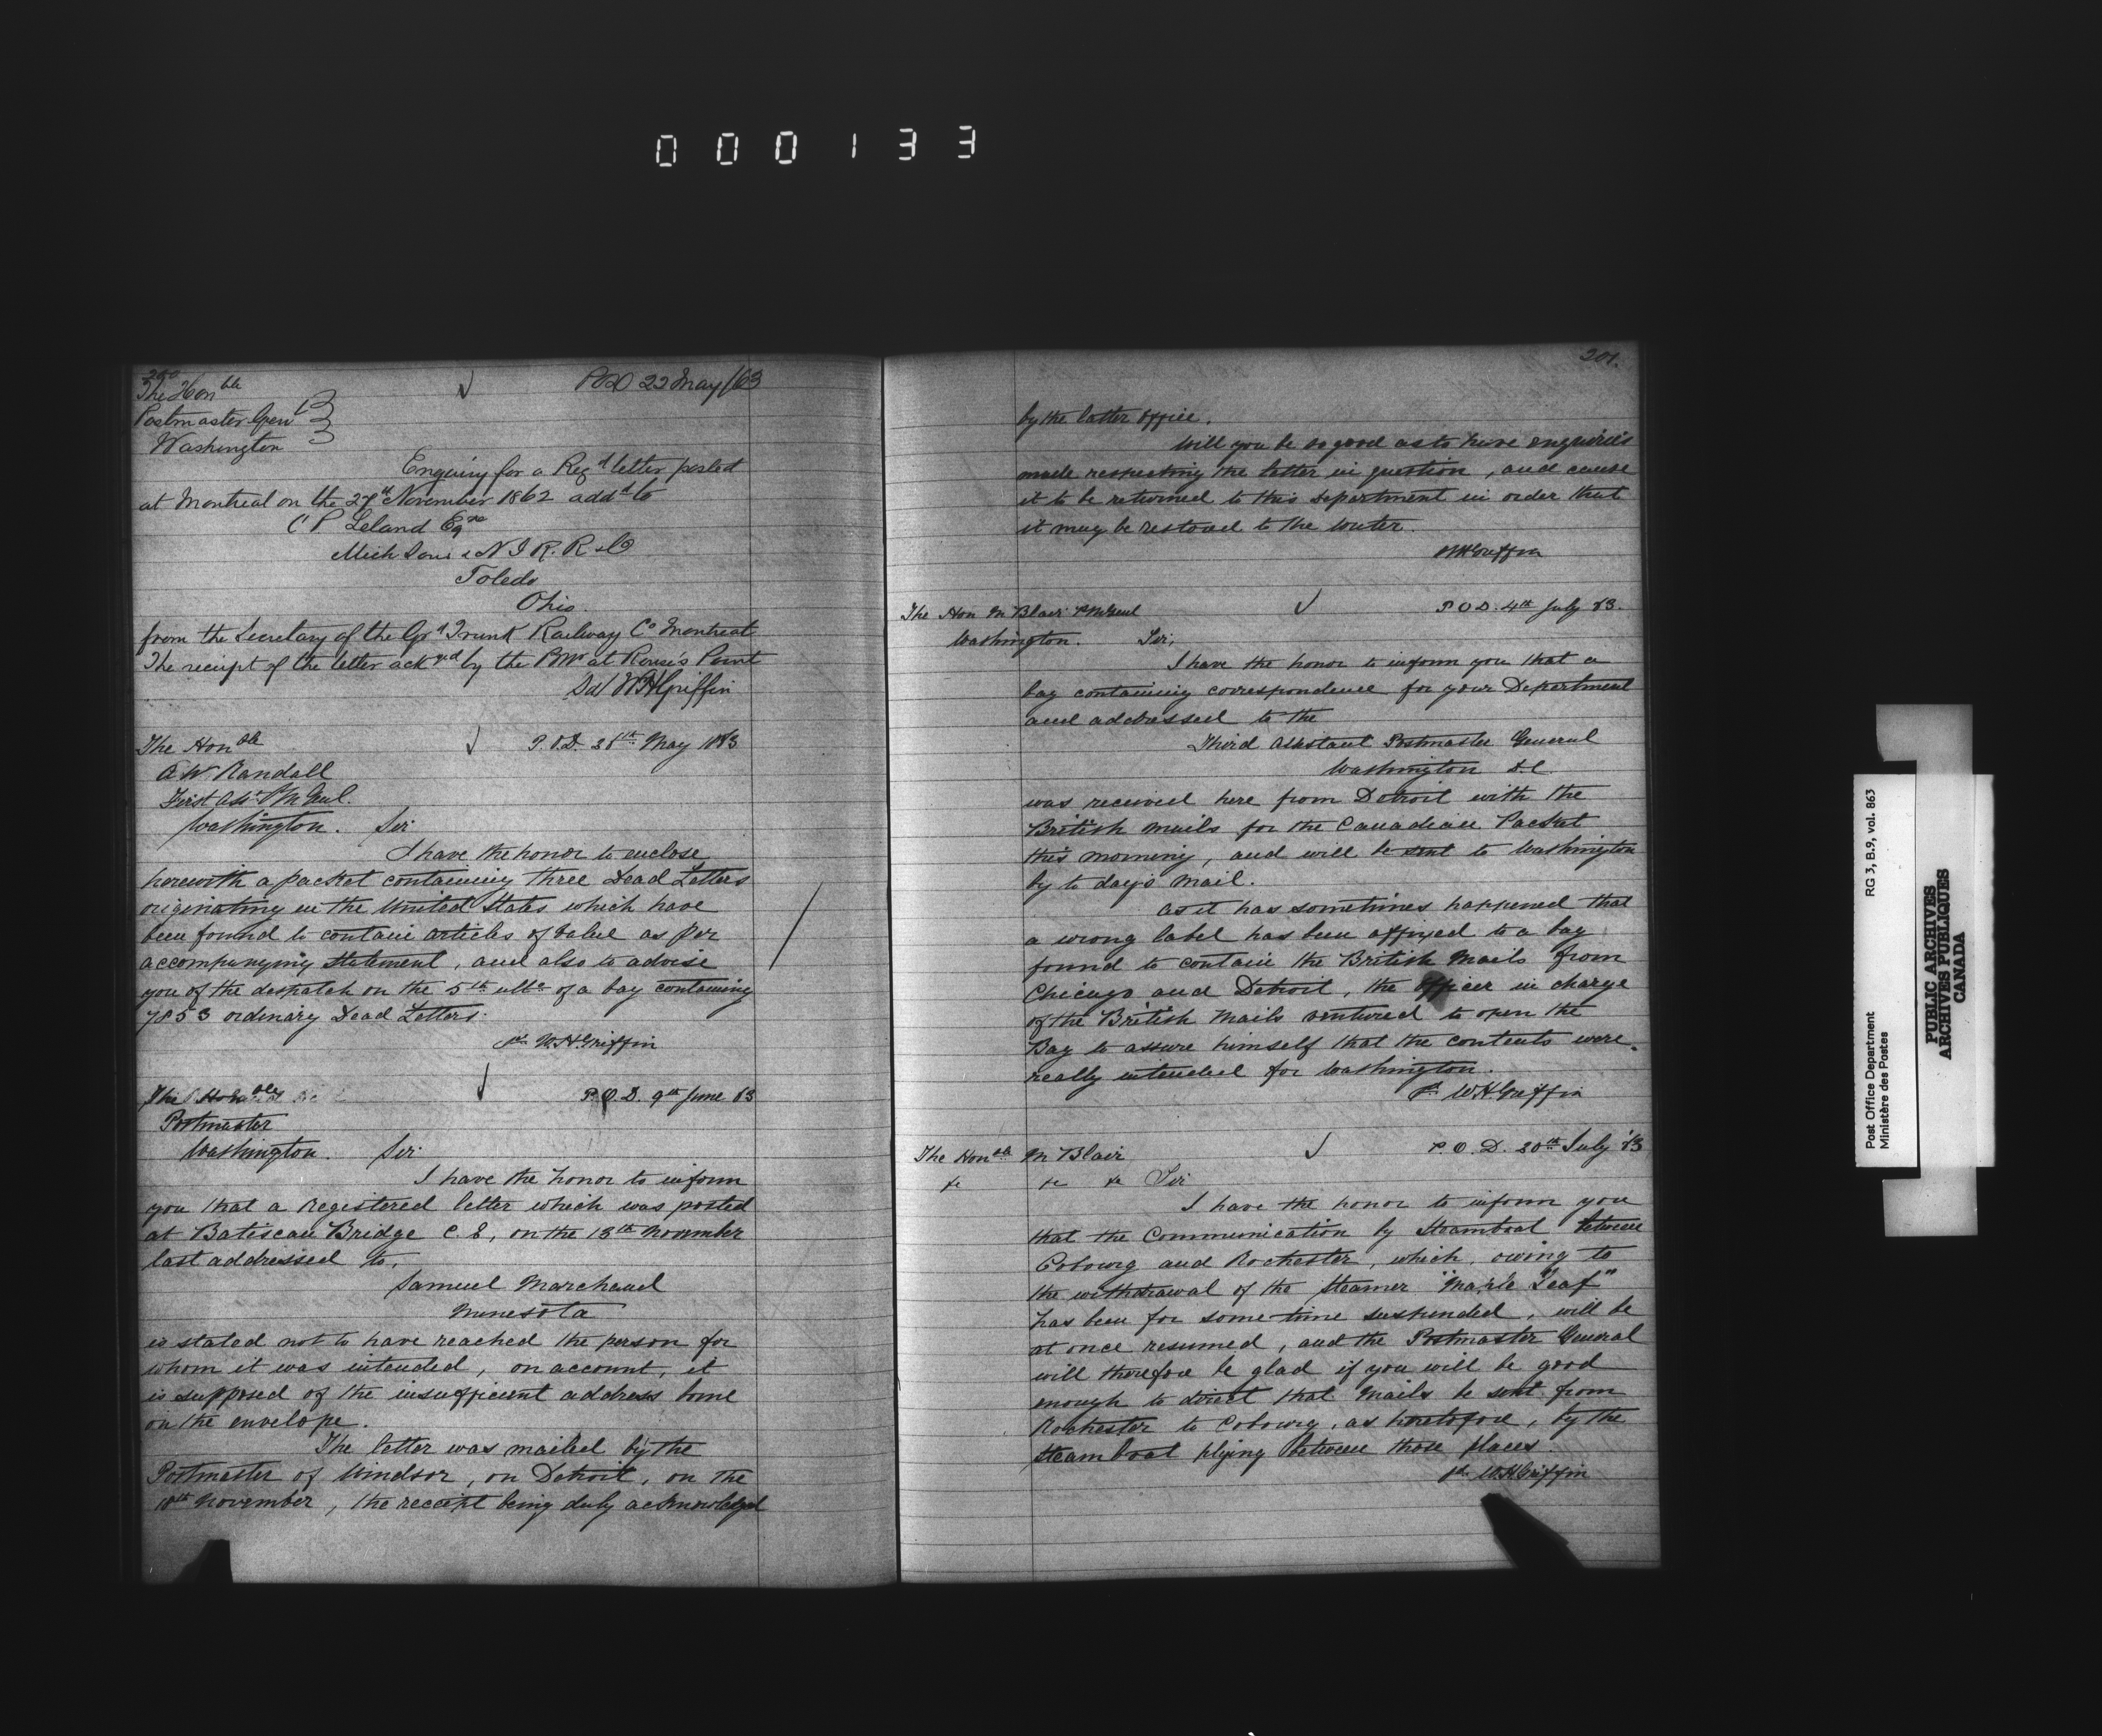 000133
200
The Honble
Postmaster Genl
Washington
POD 22 May /63
Enquiry for a Regd letter posted
at Montreal on the 27th November 1862 addd to
C P Leland Eqre
Mich Sou & N I R. R & Co
Toledo
Ohio.
from the Secretary of the Grd Trunk Railway Co Montreal
The receipt of the letter acked by the PMr at Rouse's Point
Sd/ WHGriffin
The Honble
P.O.D. 28th May 1863
A W Randall
First Asst P M Genl.
Washington. Sir
I have the honor to enclose
herewith a packet containing three Dead Letters
originating in the United States which have
been found to contain articles of value as per
accompanying statement, and also to advise
you of the despatch on the 5th ulto of a bag containing
7853 ordinary Dead Letters.
sd. W.H.Griffin
The Honble
P.O.D. 9th June 63
Postmaster
Washington. Sir
I have the honor to inform
you that a Registered letter which was posted
at Batiscan Bridge C.E, on the 13th November
last addressed to,
Samuel Marchand
Minesota
is stated not to have reached the person for
whom it was intended, on account, it
is supposed of the insufficient address borne
on the envelope.
The letter was mailed by the
Postmaster of Windsor, on Detroit, on the
18th November, the receipt being duly acknowledged
201.
by the latter office.
Will you be so good as to have enquiries
made respecting the letter in question, and cause
it to be returned to this Department in order that
it may be restored to the writer.
WHGriffin
The Hon M Blair PMGenl
P O D. 4th July 63.
Washington. Sir,
I have the honor to inform you that a
bag containing correspondence for your Department
and addressed to the
Third Assistant Postmaster General
Washington D.C.
was received here from Detroit with the
British Mails for the Canadian Packet
this morning, and will be sent to Washington
by to day's mail.
As it has sometimes happened that
a wrong label has been affixed to a bag
found to contain the British Mails from
Chicago and Detroit, the officer in charge
of the British Mails ventured to open the
Bag to assure himself that the contents were
really intended for Washington.
sd. WHGriffin
The Honble M Blair
P.O.D. 20th July 63
&c &c &c Sir
I have the honor to inform you
that the Communication by Steamboat between
Cobourg and Rochester, which, owing to
the withdrawal of the Steamer "Maple Leaf"
has been for some time suspended, will be
at once resumed, and the Postmaster General
will therefore be glad if you will be good
enough to direct that Mails be sent from
Rochester to Cobourg, as heretofore, by the
Steamboat plying between those places.
sd. WHGriffin
Post Office Department
Ministère des Postes
RG 3, B.9, vol. 863
PUBLIC ARCHIVES
ARCHIVES PUBLIQUES
CANADA